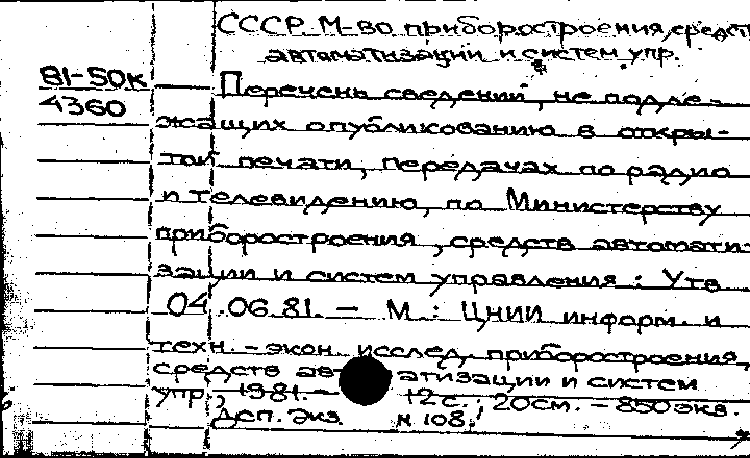 СССР. М-во приборостроения, средст
автоматизации и систем упр.
81-50к
4360
Перечень сведений, не подле-
жащих опубликованию в откры-
той печати, передачах по радио
и телевидению, по Министерству
приборостроения, средств автомати-
зации и систем управления: Утв
04.06.81. – М.: ЦНИИ информ. и
техн.-экон. исслед. приборостроения,
средств авт атизации и систем
упр., 1981. – 12 с.; 20см. – 850экз.
Дсп. Экз. н 108.